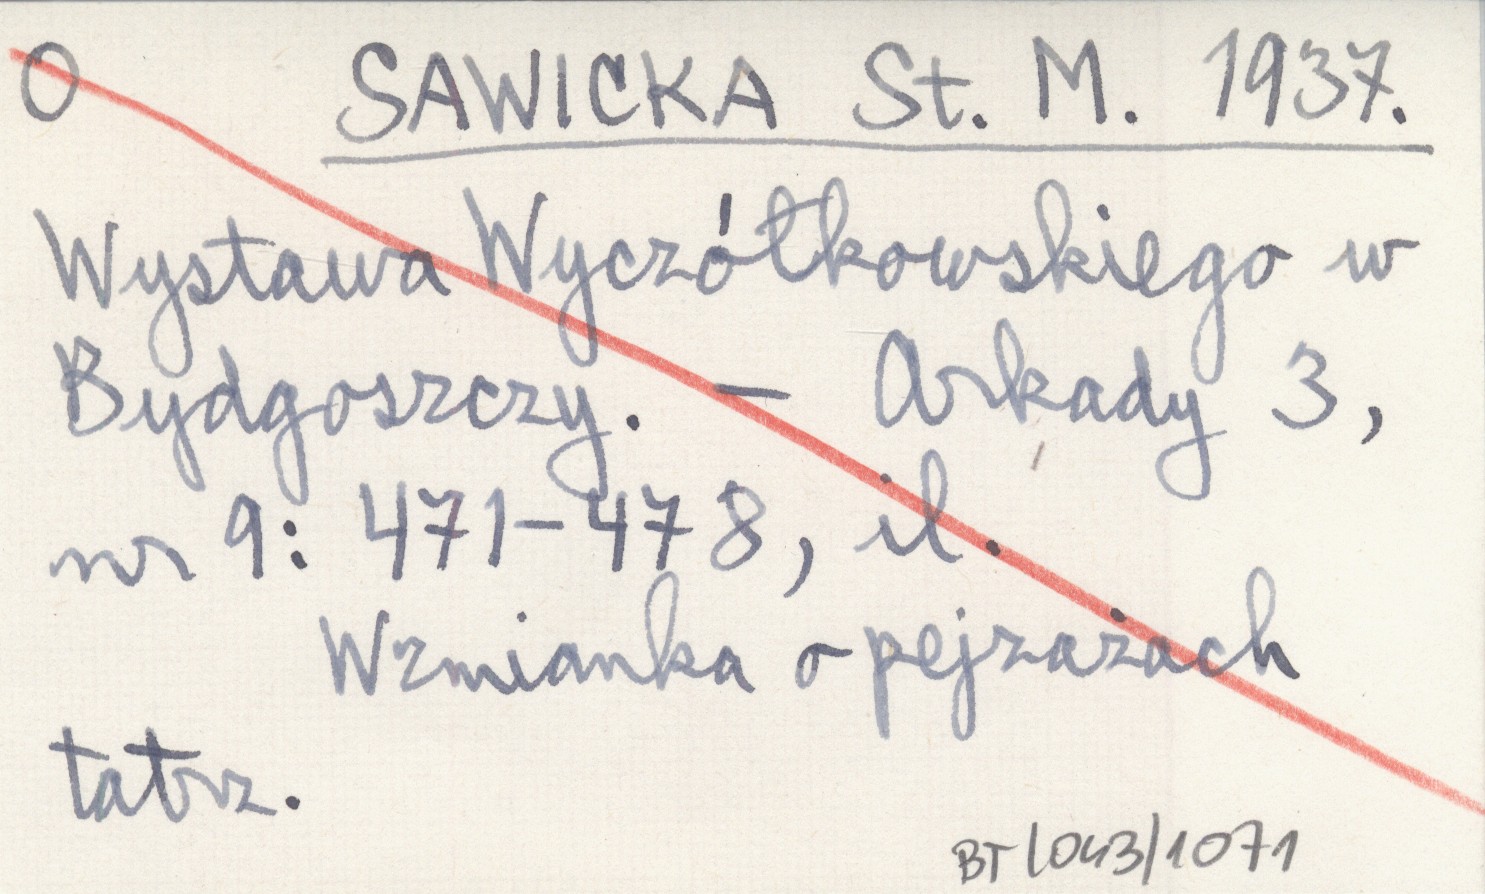 O SAWICKA St. M. 1937.
Wystawa Wyczółkowskiego w
Bydgoszczy. – Arkady 3,
nr 9: 471-478, il.
Wzmianka o pejzażach
tatrz.
BT/043/1071